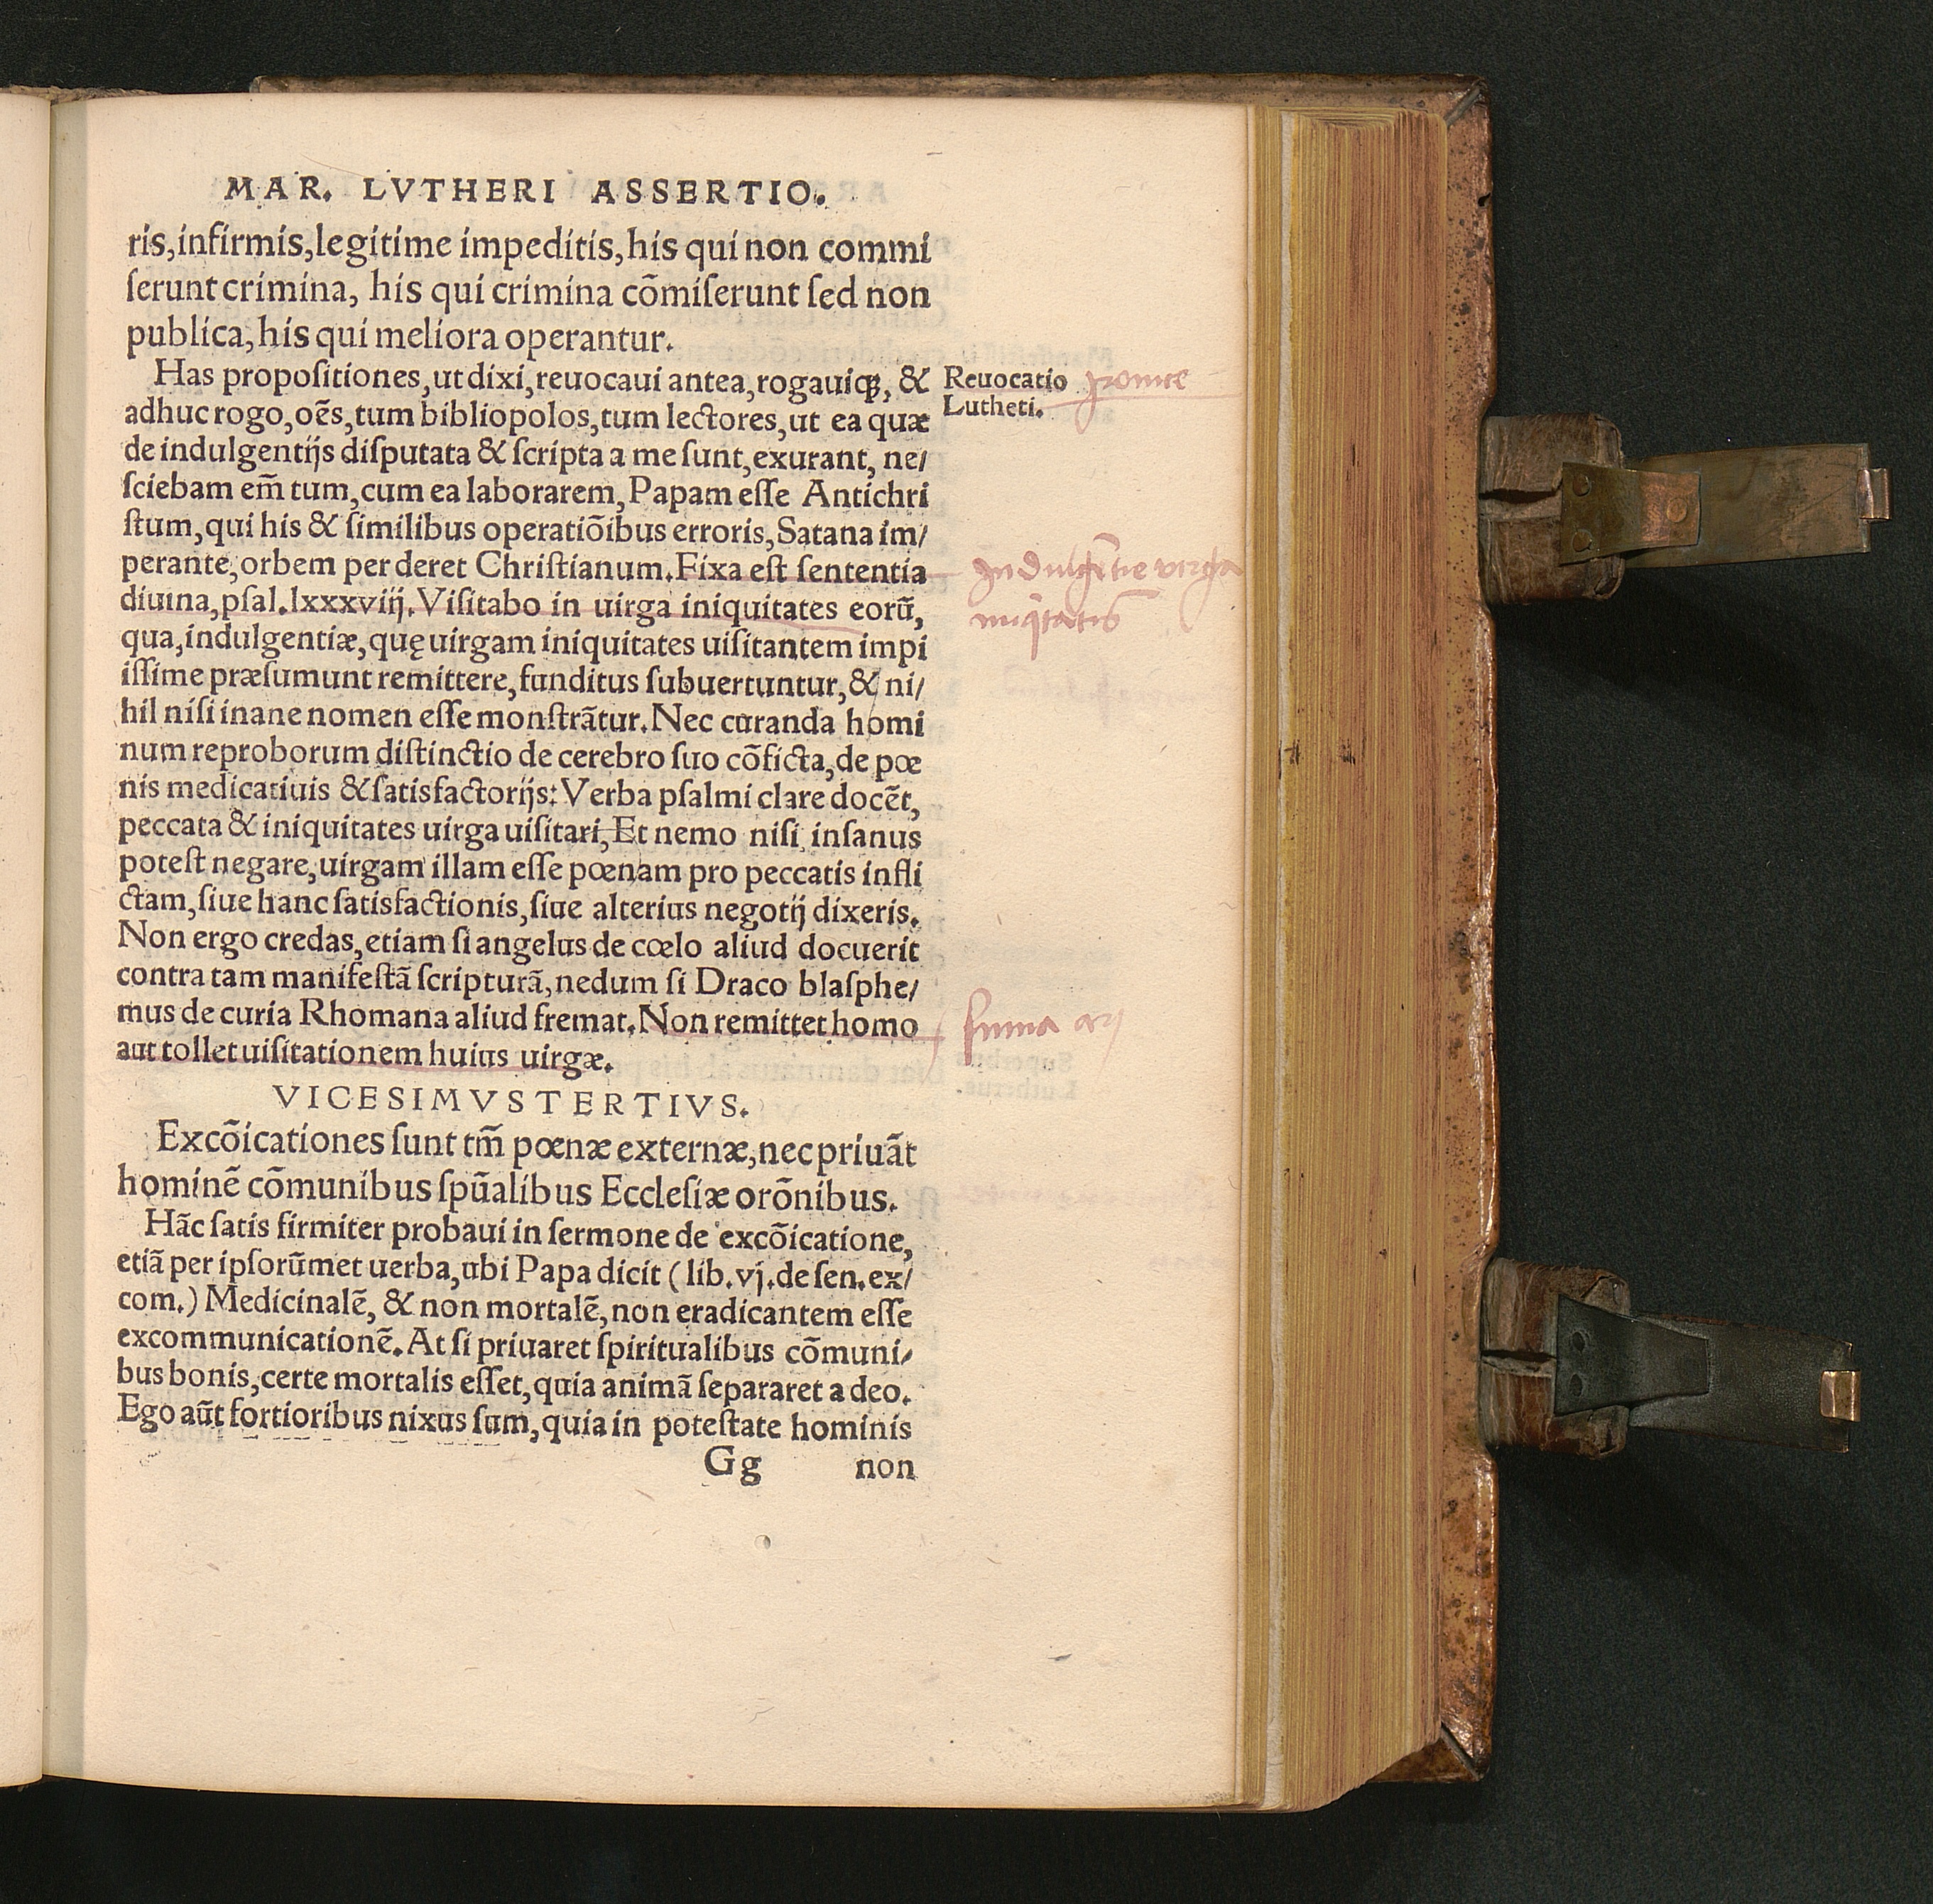 MAR. LVTHERI ASSERTIO.
ris, infirmis, legitime impeditis, his qui non commi
ſerunt crimina, his qui crimina cõmiſerunt ſed non
publica, his qui meliora operantur.
Has propoſitiones, ut dixi, reuocaui antea, rogauiqꝫ, &
Reuocatio
Lutheti.
ironice
adhuc rogo, oẽs, tum bibliopolos, tum lectores, ut ea quæ
de indulgentijs diſputata & ſcripta a me ſunt, exurant, ne/
ſciebam em̃ tum, cum ea laborarem, Papam eſſe Antichri
ſtum, qui his & ſimilibus operatiõibus erroris, Satana im/
perante, orbem perderet Chriſtianum. Fixa eſt ſententia
Indulgẽtie virga
iniqͥtatis
diuina, pſal. lxxxviij. Viſitabo in uirga iniquitates eorũ,
qua, indulgentiæ, quę uirgam iniquitates uiſitantem impi
iſſime præſumunt remittere, funditus ſubuertuntur, & ni/
hil niſi inane nomen eſſe monſtrãtur. Nec curanda homi
num reproborum diſtinctio de cerebro ſuo cõficta, de pœ
nis medicatiuis & ſatisfactorijs: Verba pſalmi clare docẽt,
peccata & iniquitates uirga uiſitari, Et nemo niſi inſanus
poteſt negare, uirgam illam eſſe pœnam pro peccatis infli
ctam, ſiue hanc ſatisfactionis, ſiue alterius negotij dixeris.
Non ergo credas, etiam ſi angelus de cœlo aliud docuerit
contra tam manifeſtã ſcripturã, nedum ſi Draco blaſphe/
mus de curia Rhomana aliud fremat. Non remittet homo
ſumma
aut tollet uiſitationem huius uirgæ.
VICESIMVS TERTIVS.
Excõicationes ſunt tm̃ pœnæ externæ, nec priuãt
hominẽ cõmunibus ſpũalibus Eccleſiæ orõnibus.
Hãc ſatis firmiter probaui in ſermone de excõicatione,
etiã per ipſorũmet uerba, ubi Papa dicit (lib. vj. de ſen. ex/
com.) Medicinalẽ, & non mortalẽ, non eradicantem eſſe
excommunicationẽ. At ſi priuaret ſpiritualibus cõmuni/
bus bonis, certe mortalis eſſet, quia animã ſepararet a deo.
Ego aũt fortioribus nixus ſum, quia in poteſtate hominis
Gg non